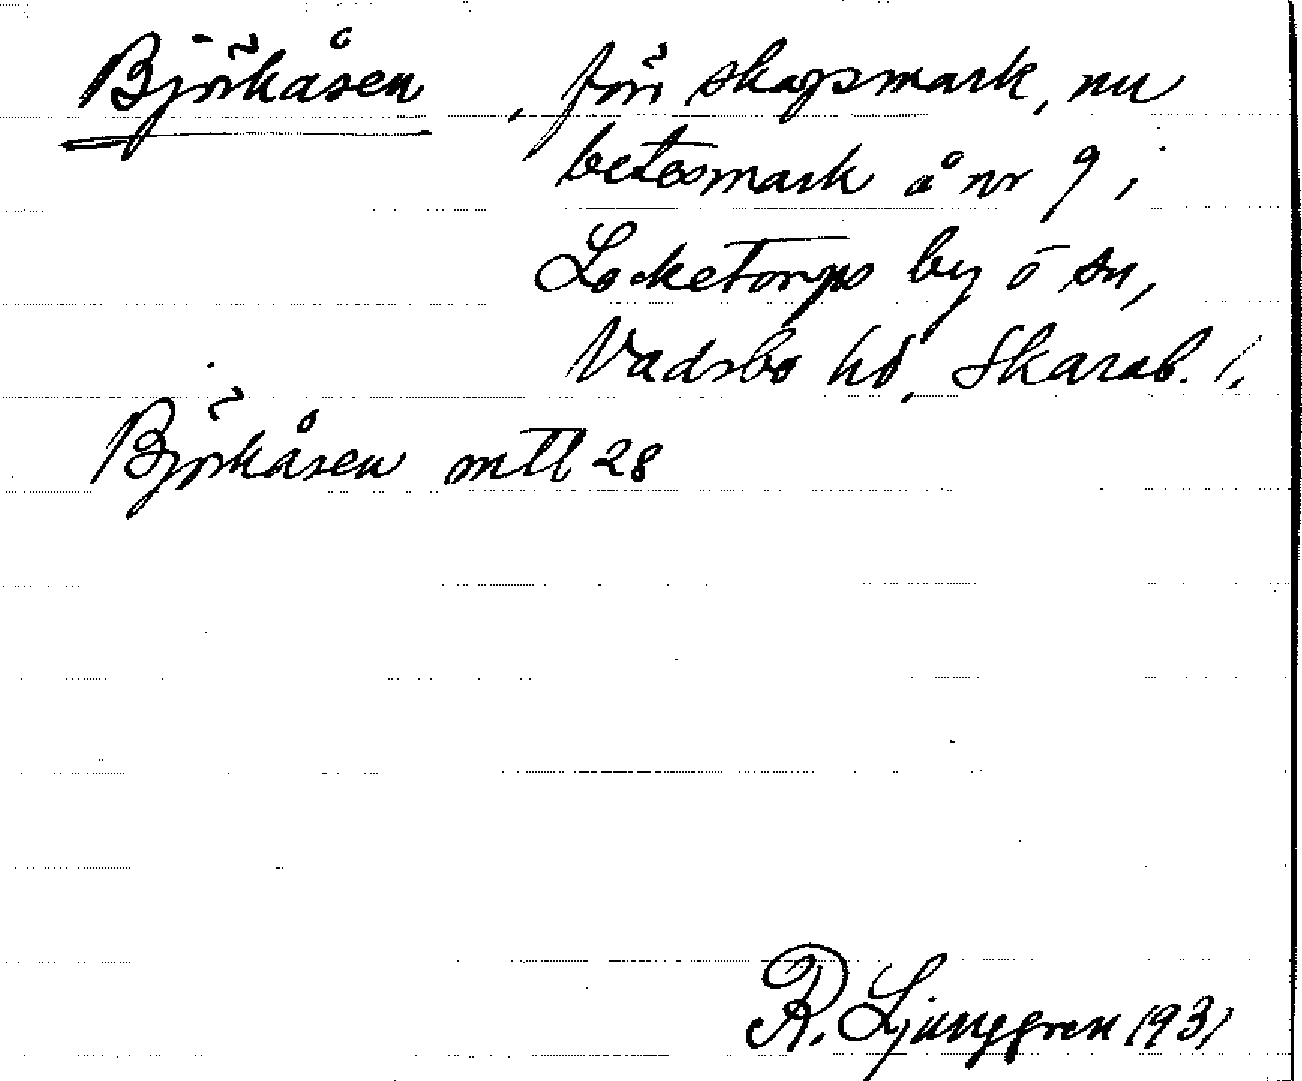 Björkåsen, förr skogsmark, nu
betesmark å nr 9 i
Locketorps by o sn,
Vadsbo hd, Skarab. l.
Björkåsen mtl 28
R. Ljunggren 1931